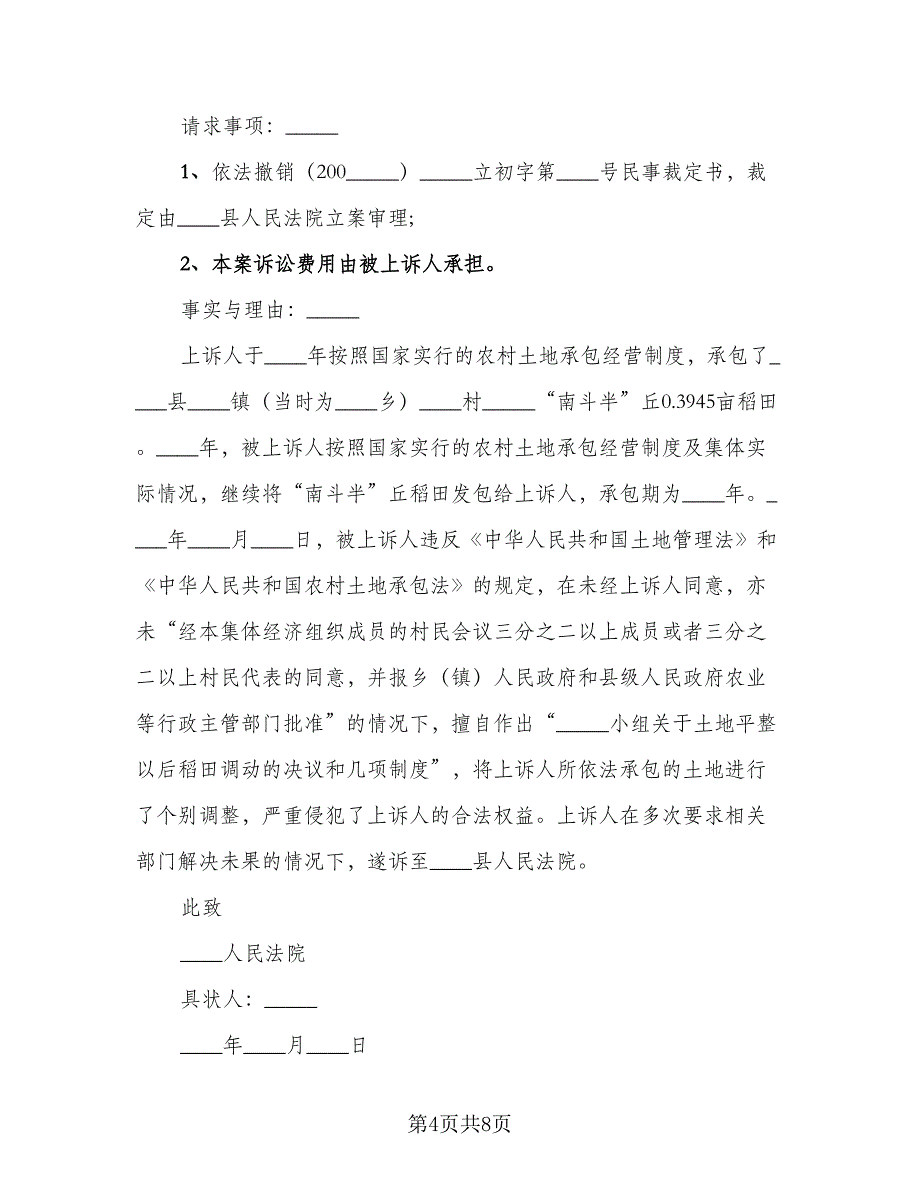 请求事项：_____
1、依法撤销（200_____）_____立初字第____号民事裁定书，裁
定由____县人民法院立案审理;
2、本案诉讼费用由被上诉人承担。
事实与理由：_____
上诉人于____年按照国家实行的农村土地承包经营制度，承包了_
___县____镇（当时为____乡）____村_____“南斗半”丘0.3945亩稻田
。____年，被上诉人按照国家实行的农村土地承包经营制度及集体实
际情况，继续将“南斗半”丘稻田发包给上诉人，承包期为____年。_
___年____月____日，被上诉人违反《中华人民共和国土地管理法》和
《中华人民共和国农村土地承包法》的规定，在未经上诉人同意，亦
未“经本集体经济组织成员的村民会议三分之二以上成员或者三分之
二以上村民代表的同意，并报乡（镇）人民政府和县级人民政府农业
等行政主管部门批准”的情况下，擅自作出“_____小组关于土地平整
以后稻田调动的决议和几项制度”，将上诉人所依法承包的土地进行
了个别调整，严重侵犯了上诉人的合法权益。上诉人在多次要求相关
部门解决未果的情况下，遂诉至____县人民法院。
此致
____人民法院
具状人：_____
____年____月____日
第4页共8页